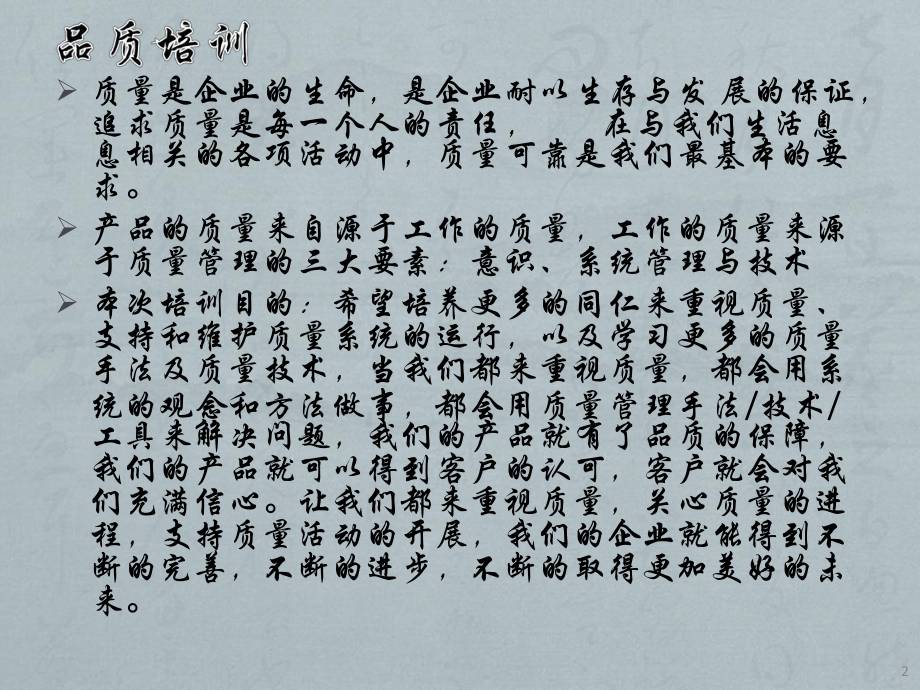 品质培训
质量是企业的生命，是企业耐以生存与发 展的保证，
追求质量是每一个人的责任， 在与我们生活息
息相关的各项活动中，质量可靠是我们最基本的要
求。
产品的质量来自源于工作的质量，工作的质量来源
于质量管理的三大要素：意识、系统管理与技术
本次培训目的：希望培养更多的同仁来重视质量、
支持和维护质量系统的运行，以及学习更多的质量
手法及质量技术，当我们都来重视质量，都会用系
统的观念和方法做事，都会用质量管理手法/技术/
工具来解决问题，我们的产品就有了品质的保障，
我们的产品就可以得到客户的认可，客户就会对我
们充满信心。让我们都来重视质量，关心质量的进
程，支持质量活动的开展，我们的企业就能得到不
断的完善，不断的进步，不断的取得更加美好的未
来。
2